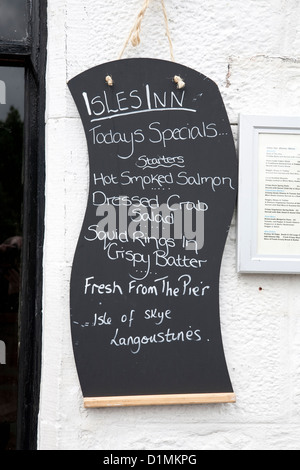 ISLES INN
Todays Specials...
Starters
Hot Smoked Salmon
Dressed Crab
Salad
Squid Rings In
Crispy Batter
Fresh From The Pier
Isle of Skye
Langoustines.
alamy
Image ID: D1MKPG
www.alamy.com